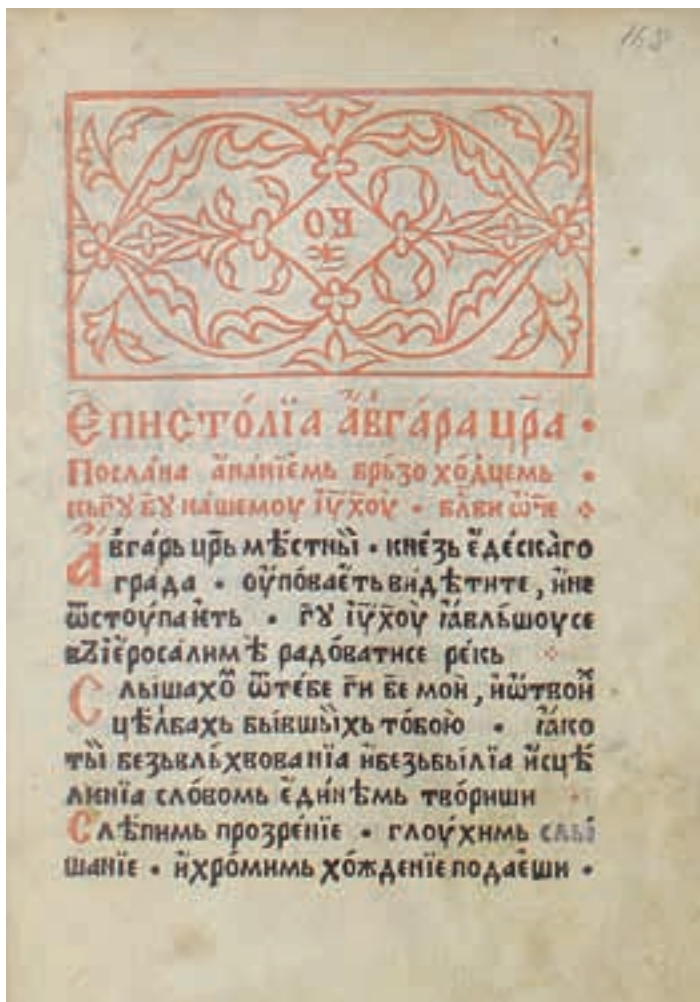 168
ОУ
Епистолїа а҆вга́ра цр҃а •
Посла́на а҆нанїемь брьзоходцемь •
кьг҃ꙋ б҃ꙋ нашемоу їꙋ҃хоу҃ • бл҃ви ѿч҃е
А҆вга́рь цр҃ь мѣстны̏ • кне́зь е҆де́скаго
града • оу҆пова́еть видѣтите, и҆не
ѿстоу́пають • г҃ꙋ їꙋ҃хоу҃ ꙗ҆вльшоусе
вꙁїе҆росалимѣ радоватисе рекь
Слышахѡ҃ ѿтебе г҃и б҃е мой, и҆ѿтвой
цѣлбахь бы́вшыихь то́бою • ꙗ҆ко
ты̏ безьвльхвованїа и҆безьбылїа и҆сцѣ
лкнїа словомь е҆ди́нѣмь тво́риши
Слѣпимь прозре́нїе • глоу́химь слы
шанїе • и҆хро́мимь хо́жденїе подае́ши •